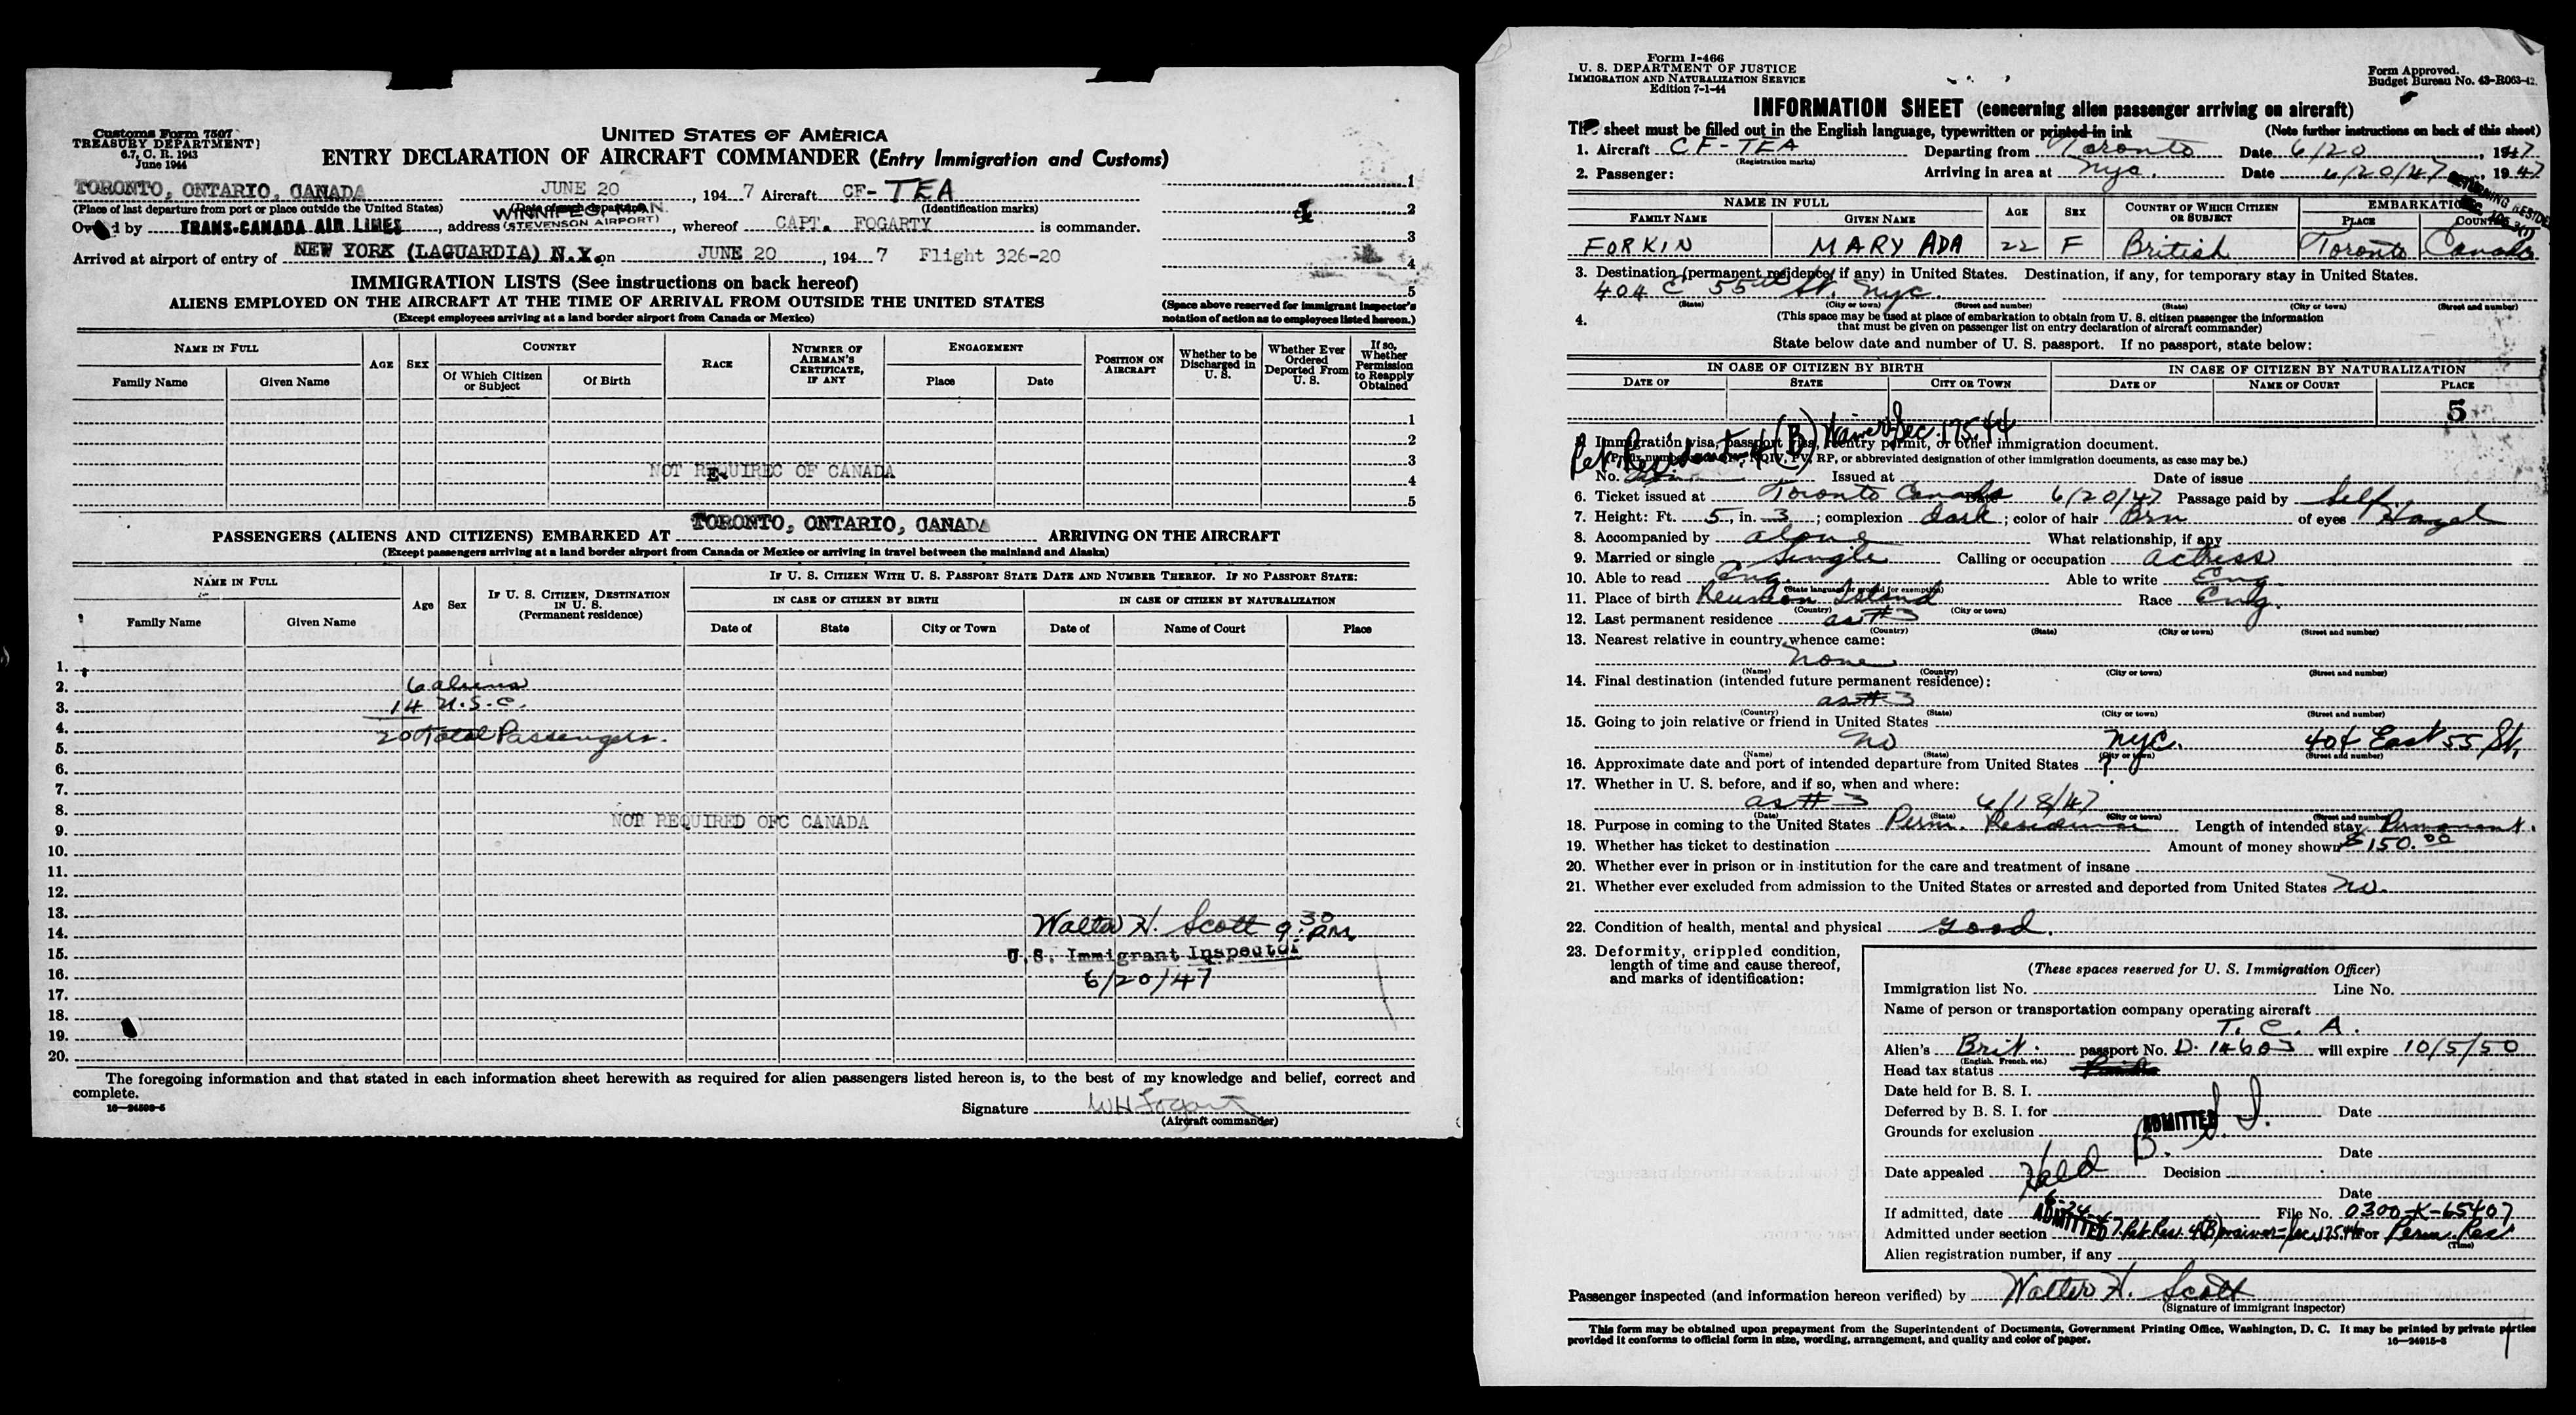 Customs Form 7507
TREASURY DEPARTMENT
6.7, C. R. 1943
June 1944
UNITED STATES OF AMERICA
ENTRY DECLARATION OF AIRCRAFT COMMANDER (Entry Immigration and Customs)
TORONTO, ONTARIO, CANADA JUNE 20, 194 7 Aircraft CF-TEA
(Place of last departure from port or place outside the United States) (Date of such departure) (Identification marks)
WINNIPEG, MAN.
Owned by TRANS-CANADA AIR LINES, address (STEVENSON AIRPORT), whereof CAPT. FOGARTY is commander.
Arrived at airport of entry of NEW YORK (LAGUARDIA) N.Y. on JUNE 20, 194 7 Flight 326-20
1
2
3
4
5
(Space above reserved for immigrant inspector's notation of action as to employees listed hereon.)
IMMIGRATION LISTS (See instructions on back hereof)
ALIENS EMPLOYED ON THE AIRCRAFT AT THE TIME OF ARRIVAL FROM OUTSIDE THE UNITED STATES
(Except employees arriving at a land border airport from Canada or Mexico)
NAME IN FULL AGE SEX COUNTRY RACE NUMBER OF AIRMAN'S CERTIFICATE, IF ANY ENGAGEMENT POSITION ON AIRCRAFT Whether to be Discharged in U. S. Whether Ever Ordered Deported From U. S. If so, Whether Permission to Reapply Obtained
Family Name Given Name Of Which Citizen or Subject Of Birth Place Date
1
2
3
NOT REQUIREC OF CANADA
4
5
PASSENGERS (ALIENS AND CITIZENS) EMBARKED AT TORONTO, ONTARIO, CANADA ARRIVING ON THE AIRCRAFT
(Except passengers arriving at a land border airport from Canada or Mexico or arriving in travel between the mainland and Alaska)
NAME IN FULL Age Sex IF U. S. CITIZEN, DESTINATION IN U. S. (Permanent residence) IF U. S. CITIZEN WITH U. S. PASSPORT STATE DATE AND NUMBER THEREOF. IF NO PASSPORT STATE:
IN CASE OF CITIZEN BY BIRTH IN CASE OF CITIZEN BY NATURALIZATION
Family Name Given Name Date of State City or Town Date of Name of Court Place
1.
2. 6 aliens
3. 14 U.S.C.
4. 20 Total Passengers.
5.
6.
7.
8.
NOT REQUIRED OFC CANADA
9.
10.
11.
12.
13.
14. Walter H. Scott 9:30 P.M.
15. U.S. Immigrant Inspector
16. 6/20/47
17.
18.
19.
20.
The foregoing information and that stated in each information sheet herewith as required for alien passengers listed hereon is, to the best of my knowledge and belief, correct and complete.
16—24500-5
Signature WH Fogarty
(Aircraft commander)
Form I-466
U. S. DEPARTMENT OF JUSTICE
IMMIGRATION AND NATURALIZATION SERVICE
Edition 7-1-44
Form Approved.
Budget Bureau No. 43-R063-42.
INFORMATION SHEET (concerning alien passenger arriving on aircraft)
This sheet must be filled out in the English language, typewritten or printed in ink (Note further instructions on back of this sheet)
1. Aircraft CF-TEA Departing from Toronto Date 6/20, 1947
(Registration marks)
2. Passenger: Arriving in area at NYC. Date 6/20/47, 1947
RETURNING RESIDENT
NAME IN FULL AGE SEX COUNTRY OF WHICH CITIZEN OR SUBJECT EMBARKATION
FAMILY NAME GIVEN NAME PLACE COUNTRY
FORKIN MARY ADA 22 F British Toronto Canada
3. Destination (permanent residence, if any) in United States. Destination, if any, for temporary stay in United States.
404 E 55th St. NYC
(State) (City or town) (Street and number) (State) (City or town) (Street and number)
4. (This space may be used at place of embarkation to obtain from U. S. citizen passenger the information
that must be given on passenger list on entry declaration of aircraft commander)
State below date and number of U. S. passport. If no passport, state below:
IN CASE OF CITIZEN BY BIRTH IN CASE OF CITIZEN BY NATURALIZATION
DATE OF STATE CITY OR TOWN DATE OF NAME OF COURT PLACE
5
Ret. Resident. 4 (B) Waiver Sec. 175.44
5. Immigration visa, passport visa, reentry permit, or other immigration document.
(Prefix number NQIV, PV, RP, or abbreviated designation of other immigration documents, as case may be.)
No. Issued at Date of issue
6. Ticket issued at Toronto Canada Date 6/20/47 Passage paid by Self
7. Height: Ft. 5, in. 3; complexion dark; color of hair Brn of eyes Hazel
8. Accompanied by alone What relationship, if any
9. Married or single Single Calling or occupation actress
10. Able to read Eng. Able to write Eng.
(State language or ground for exemption)
11. Place of birth Reunion Island Race Eng.
(Country) (City or town)
12. Last permanent residence as #3
(Country) (State) (City or town) (Street and number)
13. Nearest relative in country whence came:
none
(Name) (Country) (City or town) (Street and number)
14. Final destination (intended future permanent residence):
as #3
(Country) (State) (City or town) (Street and number)
15. Going to join relative or friend in United States
no NYC. 404 East 55 St,
(Name) (State) (City or town) (Street and number)
16. Approximate date and port of intended departure from United States ?
17. Whether in U. S. before, and if so, when and where:
as #3 6/18/47
(Date) (State) (City or town) (Street and number)
18. Purpose in coming to the United States Perm. Residence Length of intended stay Permanent.
19. Whether has ticket to destination Amount of money shown $150.00
20. Whether ever in prison or in institution for the care and treatment of insane
21. Whether ever excluded from admission to the United States or arrested and deported from United States no.
22. Condition of health, mental and physical good.
23. Deformity, crippled condition,
length of time and cause thereof,
and marks of identification:
(These spaces reserved for U. S. Immigration Officer)
Immigration list No. Line No.
Name of person or transportation company operating aircraft
T. C. A.
Alien's Brit. passport No. D. 14603 will expire 10/5/50
(English, French, etc.)
Head tax status
Date held for B. S. I.
Deferred by B. S. I. for Date
ADMITTED
Grounds for exclusion
Held B. S. I.
Date
Date appealed Decision
Date
If admitted, date File No. 0300-K-65407
ADMITTED
Admitted under section Ret Res. 4(B) waiver-Sec. 175.44 for Perm. Res
(Time)
Alien registration number, if any
Passenger inspected (and information hereon verified) by Walter H. Scott
(Signature of immigrant inspector)
This form may be obtained upon prepayment from the Superintendent of Documents, Government Printing Office, Washington, D. C. It may be printed by private parties
provided it conforms to official form in size, wording, arrangement, and quality and color of paper. 16—24915-3